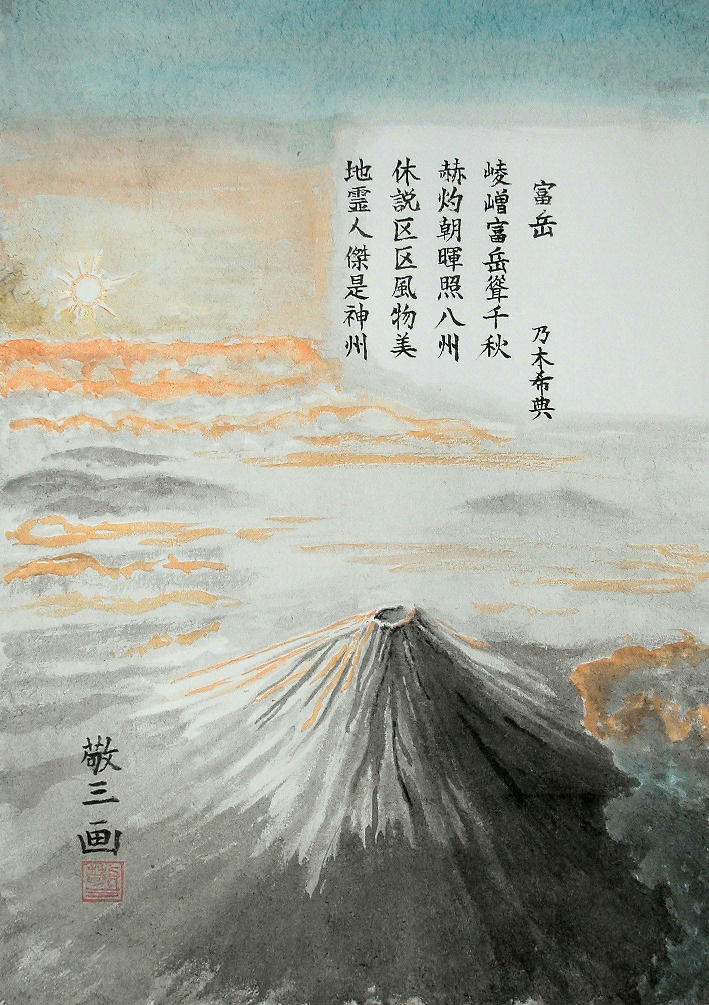 富岳 乃木希典
崚嶒富岳聳千秋
赫灼朝暉照八州
休説区区風物美
地霊人傑是神州
敬三画